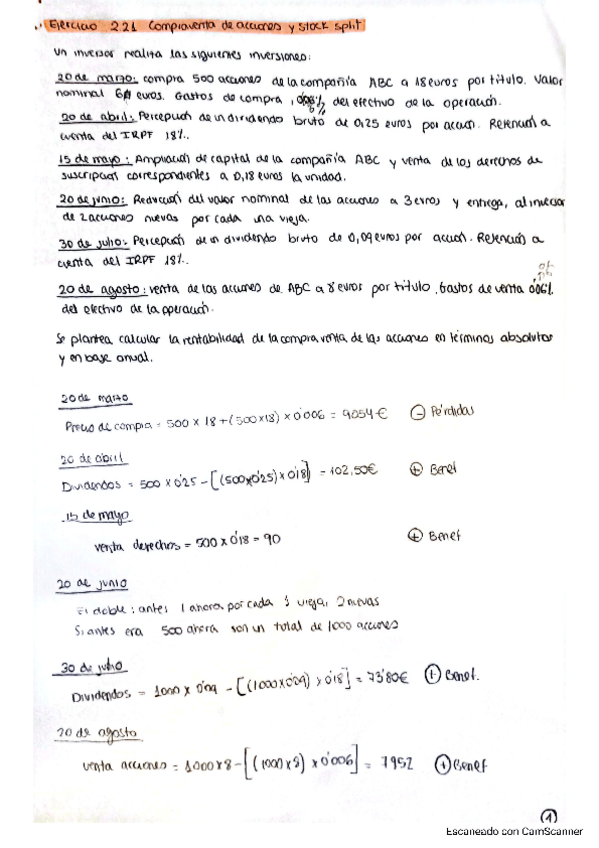 Ejercicio 2.21 Compraventa de acciones y stock split
Un inversor realiza las siguientes inversiones:
20 de marzo: compra 500 acciones de la compañía ABC a 18 euros por título. Valor
nominal 6 euros. Gastos de compra, % del efectivo de la operación.
20 de abril: Percepción de un dividendo bruto de 0,25 euros por acción. Retención a
cuenta del IRPF 18%.
15 de mayo: Ampliación de capital de la compañía ABC y venta de los derechos de
suscripción correspondientes a 0,18 euros la unidad.
20 de junio: Reducción del valor nominal de las acciones a 3 euros y entrega, al inversor
de 2 acciones nuevas por cada una vieja.
30 de julio: Percepción de un dividendo bruto de 0,09 euros por acción. Retención a
cuenta del IRPF 18%.
20 de agosto: venta de las acciones de ABC a 8 euros por título. Gastos de venta %
del efectivo de la operación.
Se plantea calcular la rentabilidad de la compraventa de las acciones en términos absolutos
y en base anual.
20 de marzo
Precio de compra = 500 x 18 + (500x18) x 0'006 = 9054 € (-) Pérdidas
20 de abril
Dividendos = 500 x 0'25 - [(500x0'25) x 0'18] = 102,50€ (+) Benef
15 de mayo
venta derechos = 500 x 0'18 = 90 (+) Benef
20 de junio
El doble: antes 1 ahora, por cada 1 vieja, 2 nuevas
Si antes era 500 ahora son un total de 1000 acciones
30 de julio
Dividendos = 1000 x 0'09 - [(1000x0'09) x 0'18] = 73'80€ (+) Benef.
20 de agosto
venta acciones = 1000 x 8 - [(1000 x 8) x 0'006] = 7952 (+) Benef
1
Escaneado con CamScanner